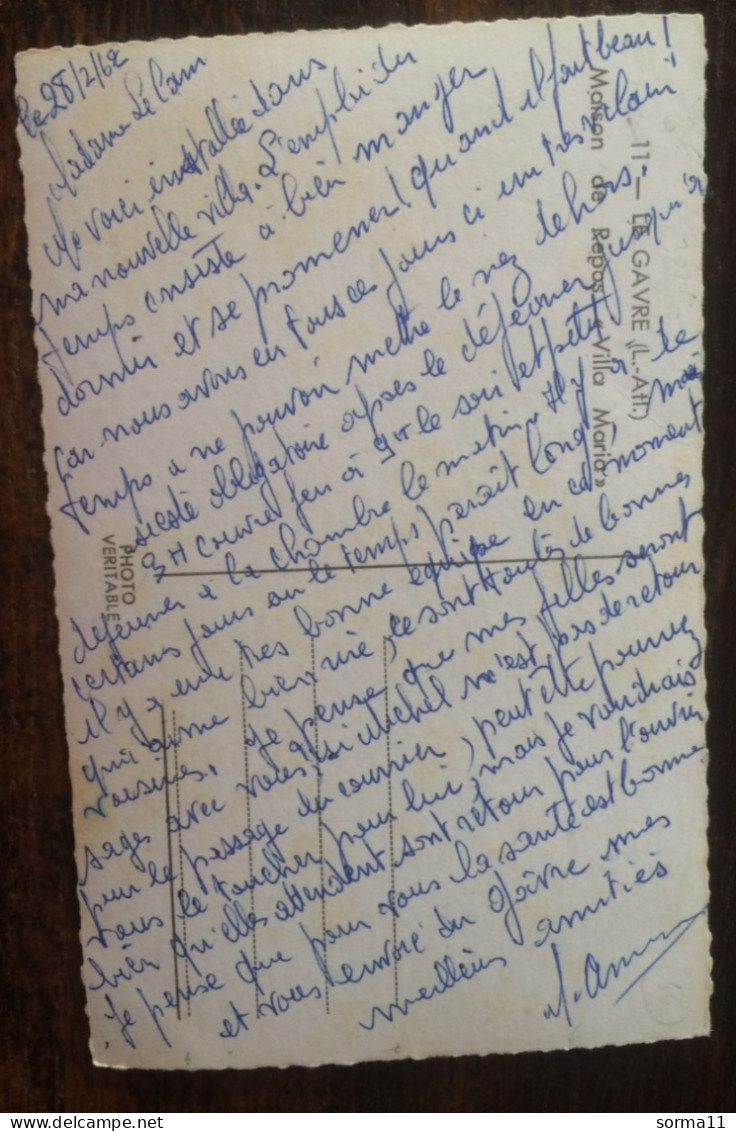 le 28/2/62
Madame Le Cam
Me voici installée dans
ma nouvelle villa. L'emploi du
temps consiste à bien manger
dormir et se promener ! quand il fait beau !
car nous avons eu tous ces jours ci un très vilain
temps a ne pouvoir mettre le nez dehors.
sieste obligatoire après le déjeuner jusqu'à
3H couvre feu à 9H le soir et petit
déjeuner à la chambre le matin. Il y a
certains jours ou le temps parait long, mais
il y a une très bonne équipe en ce moment
qui aime bien rire, ce sont toutes de bonnes
vosines. Je pense que mes filles seront
sages avec vous, si Michel n'est pas de retour
pour le passage du courrier, peut être pourrez
vous le toucher pour lui, mais je voudrais
bien qu'elles attendent son retour pour l'ouvrir
Je pense que pour vous la santé est bonne
et vous envoie du Gâvre mes
meilleures amitiés
11 — LE GAVRE (L.-Atl.)
Maison de Repos « Villa Maria »
PHOTO
VERITABLE
Copyright : sorma11